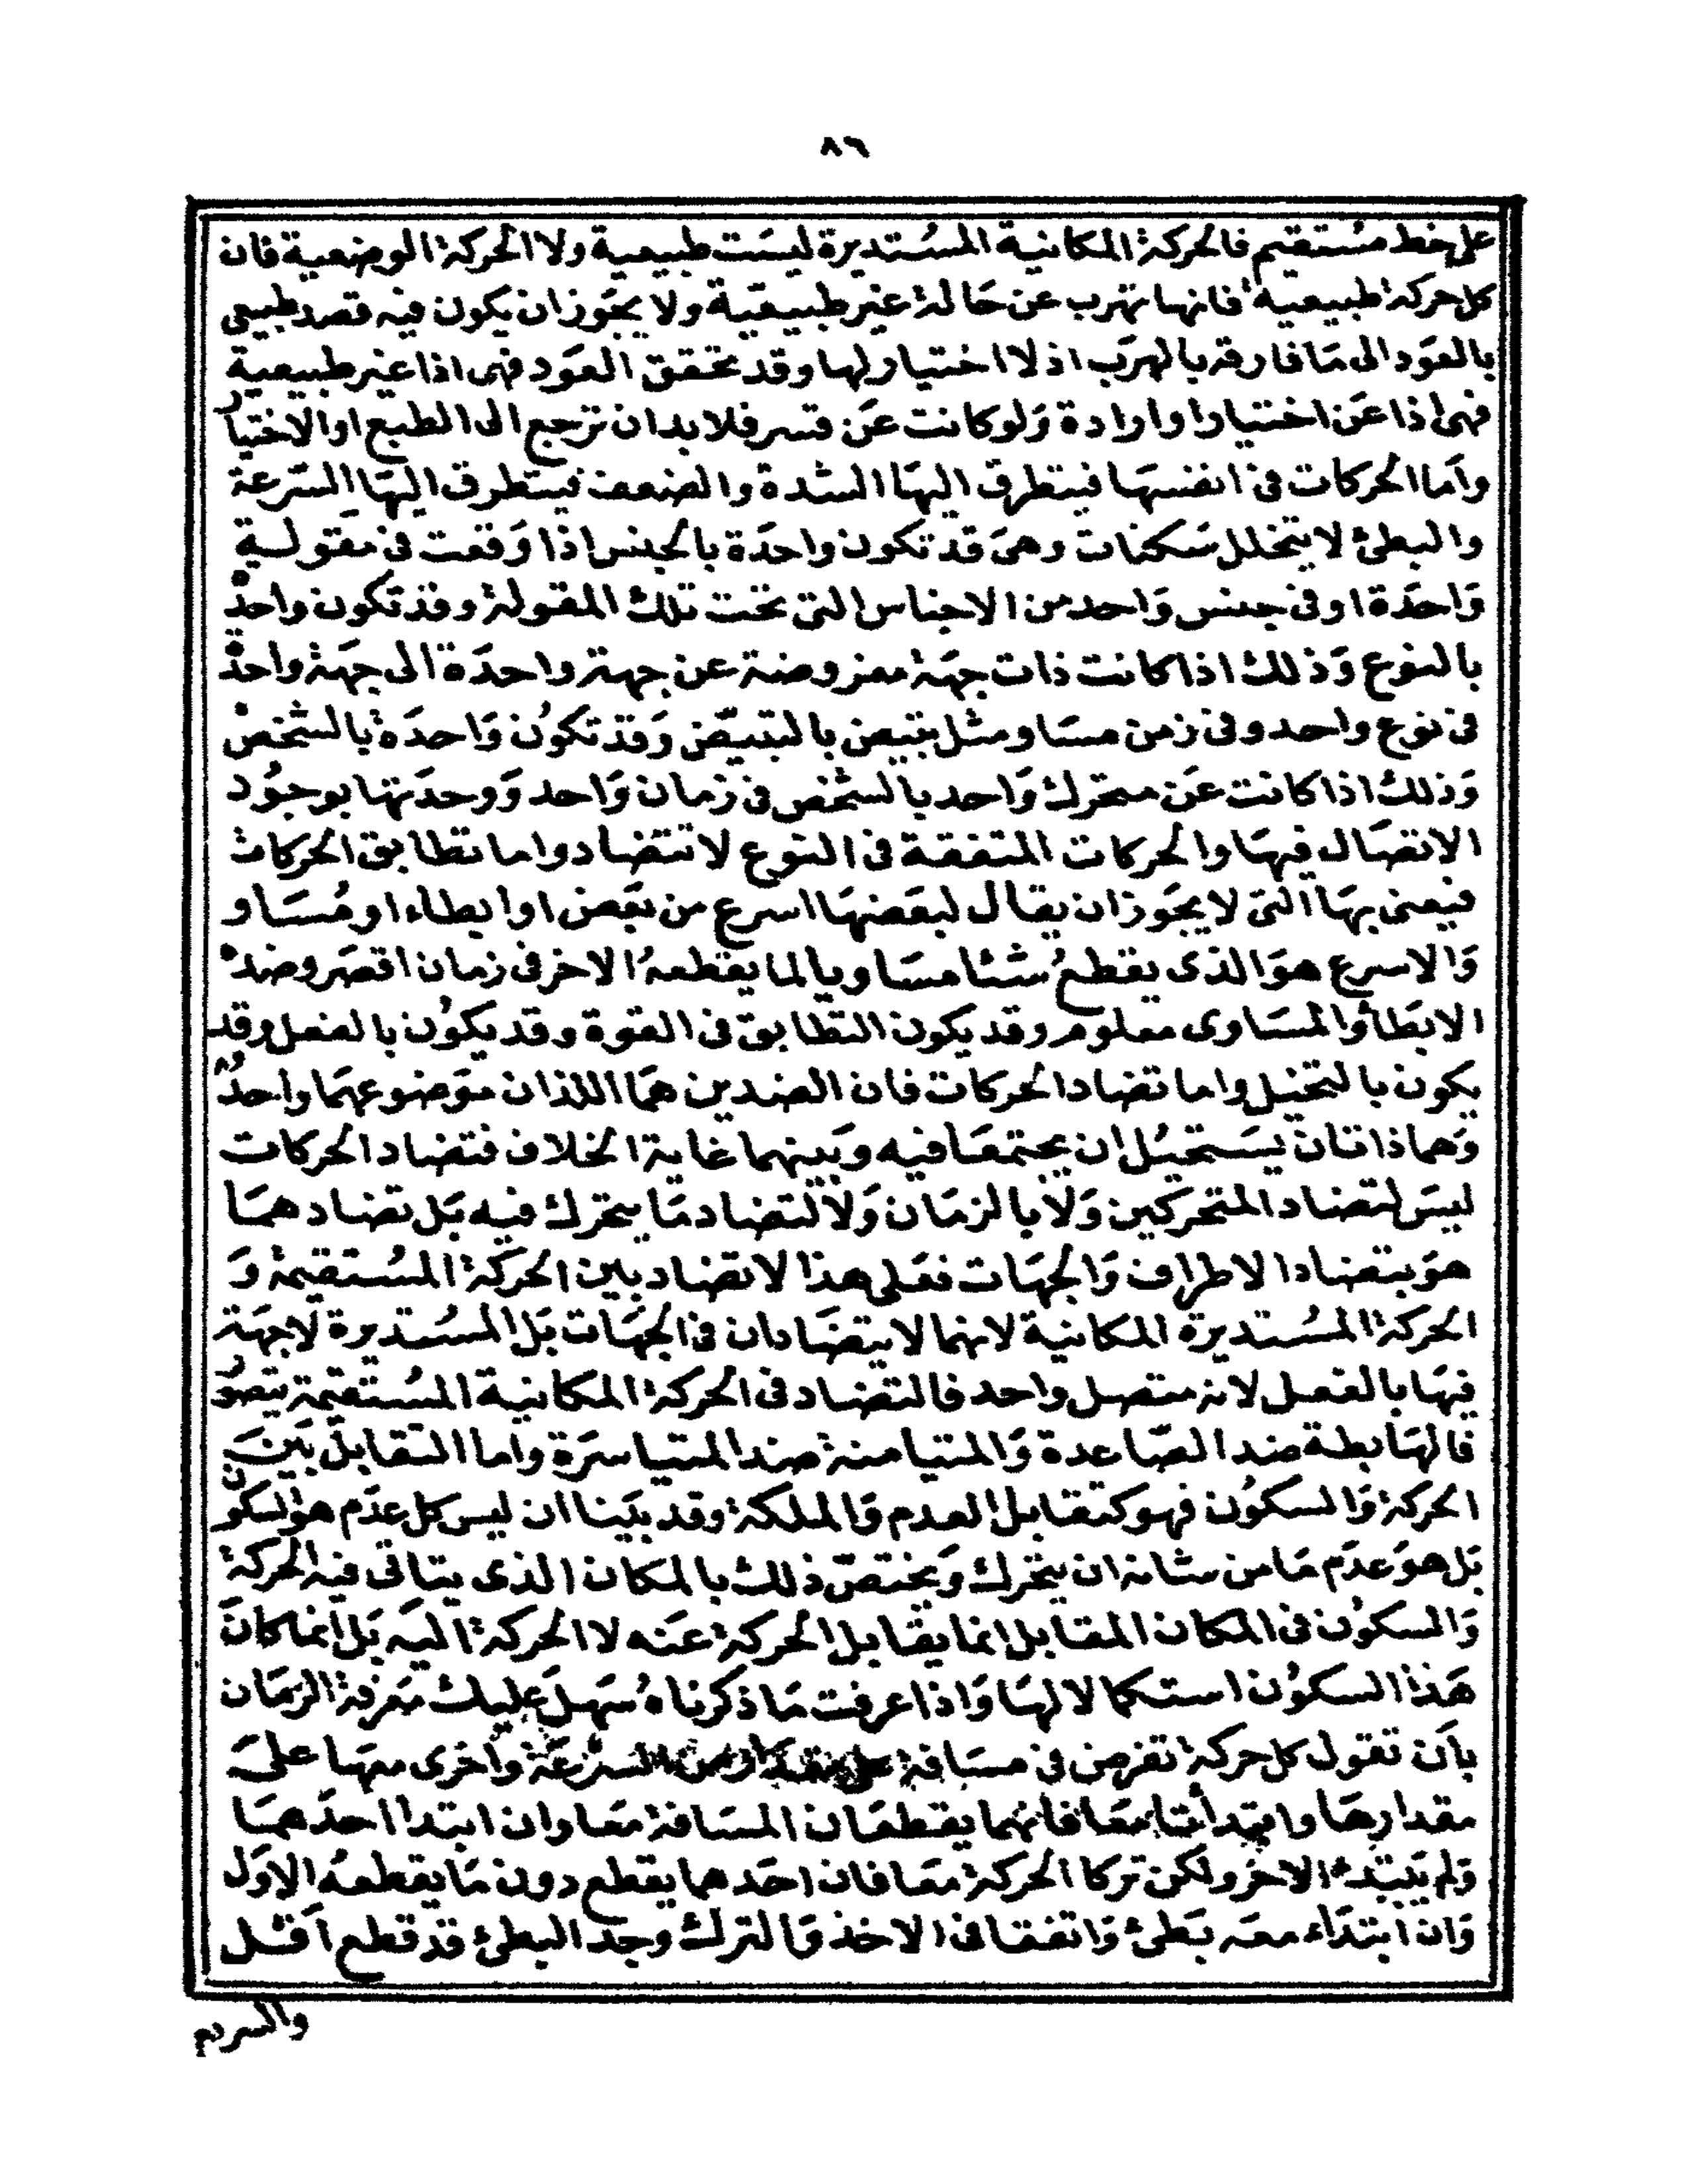 ٨٦
على خط مستقيم فالحركة المكانية المستديرة ليست طبيعية ولا الحركة الوضعية فان
كل حركة طبيعية فانها تهرب عن حالة غير طبيعية ولا يجوز ان يكون فيه قصد طبيعى
بالعود الى ما فارقه بالهرب اذ لا اختيار لها وقد تحقق العود فهى اذا غير طبيعية
فهى اذا عن اختيار او ارادة ولو كانت عن قسر فلا بد ان ترجع الى الطبع او الاختيار
واما الحركات فى انفسها فيتطرق اليها الشدة والضعف فيتطرق اليها السرعة
والبطئ لا يتخلل سكنات وهى قد تكون واحدة بالجنس اذا وقعت فى مقولة
واحدة او فى جنس واحد من الاجناس التى تحت تلك المقولة وقد تكون واحدة
بالنوع وذلك اذا كانت ذات جهة مفروضة عن جهة واحدة الى جهة واحدة
فى نوع واحد وفى زمن مساو مثل بتبيض بالتبيض وقد تكون واحدة بالشخص
وذلك اذا كانت عن متحرك واحد بالشخص فى زمان واحد ووحدتها بوجود
الاتصال فيها والحركات المتفقة فى النوع لا تتضاد واما تطابق الحركات
فيعنى بها التى لا يجوز ان يقال لبعضها اسرع من بعض او ابطاء او مساو
والاسرع هو الذى يقطع شئا مساويا لما يقطعه الاخر فى زمان اقصر وضده
الابطأ والمساوى معلوم وقد يكون التطابق فى القوة وقد يكون بالفعل وقد
يكون بالتخيل واما تضاد الحركات فان الضدين هما اللذان موضوعهما واحد
وهما ذاتان يستحيل ان يجتمعا فيه وبينهما غاية الخلاف فتضاد الحركات
ليس لتضاد المتحركين ولا بالزمان ولا لتضاد ما يتحرك فيه بل تضادهما
هو بتضاد الاطراف والجهات فعلى هذا لا تضاد بين الحركة المستقيمة و
الحركة المستديرة المكانية لانهما لا يتضادان فى الجهات بل المستديرة لا جهة
فيها بالفعل لانه متصل واحد فالتضاد فى الحركة المكانية المستقيمة يتصور
فالهابطة ضد الصاعدة والمتيامنة ضد المتياسرة واما التقابل بين
الحركة والسكون فهو كتقابل العدم والملكة وقد بينا ان ليس كل عدم هو السكون
بل هو عدم ما من شانه ان يتحرك ويختص ذلك بالمكان الذى يتاتى فيه الحركة
والسكون فى المكان المقابل انما يقابل الحركة عنه لا الحركة اليه بل انما كان
هذا السكون استكمالا لها واذا عرفت ما ذكرناه سهل عليك معرفة الزمان
بان تقول كل حركة تفرض فى مسافة على مقدار من السرعة واخرى معها على
مقدارها وابتدأتا معا فانهما يقطعان المسافة معا وان ابتدا احدهما
ولم يبتدء الاخر ولكن تركا الحركة معا فان احدهما يقطع دون ما يقطعه الاول
وان ابتداء معه بطئ واتفقا فى الاخذ والترك وجد البطئ قد قطع اقل